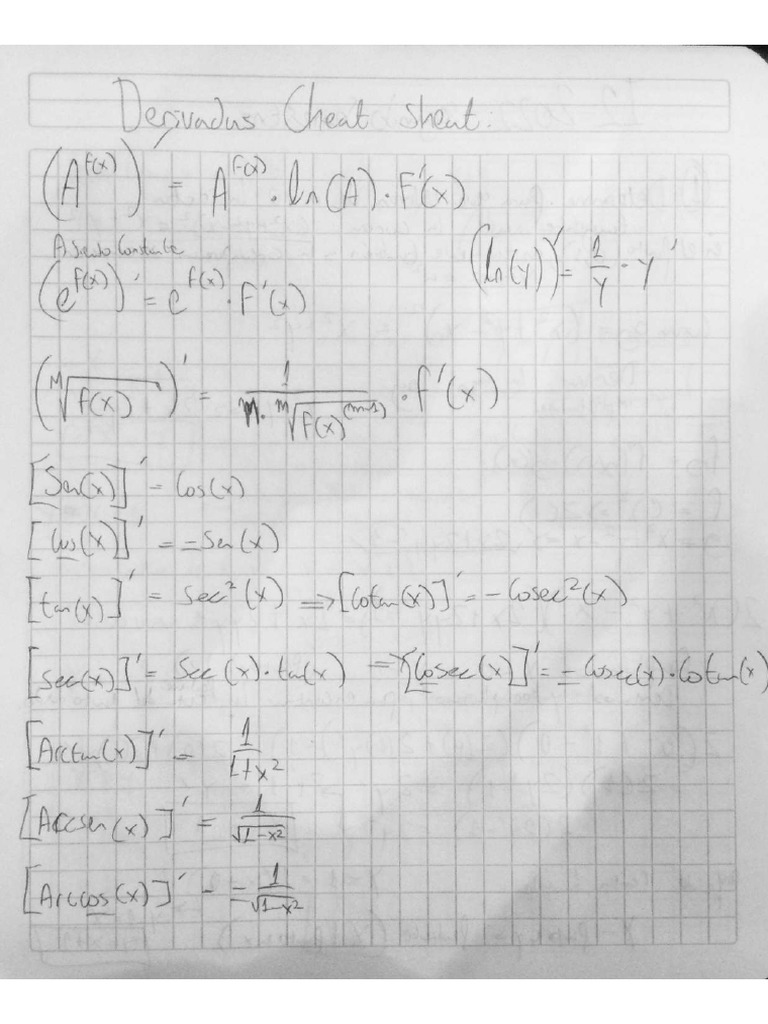 Derivadas Cheat Sheat:
(A^f(x))' = A^f(x) · ln(A) · F'(x)
A siendo Constante
(ln(y))' = 1/y · y'
(e^f(x))' = e^f(x) · F'(x)
(ᵐ√f(x))' = 1/(m · ᵐ√f(x)^(m-1)) · f'(x)
[Sen(x)]' = Cos(x)
[Cos(x)]' = -Sen(x)
[tan(x)]' = Sec²(x) ⇒ [Cotan(x)]' = -Cosec²(x)
[Sec(x)]' = Sec(x) · tan(x) ⇒ [Cosec(x)]' = -Cosec(x) · Cotan(x)
[Arctan(x)]' = 1/(1+x²)
[Arcsen(x)]' = 1/√(1-x²)
[Arccos(x)]' = -1/√(1-x²)